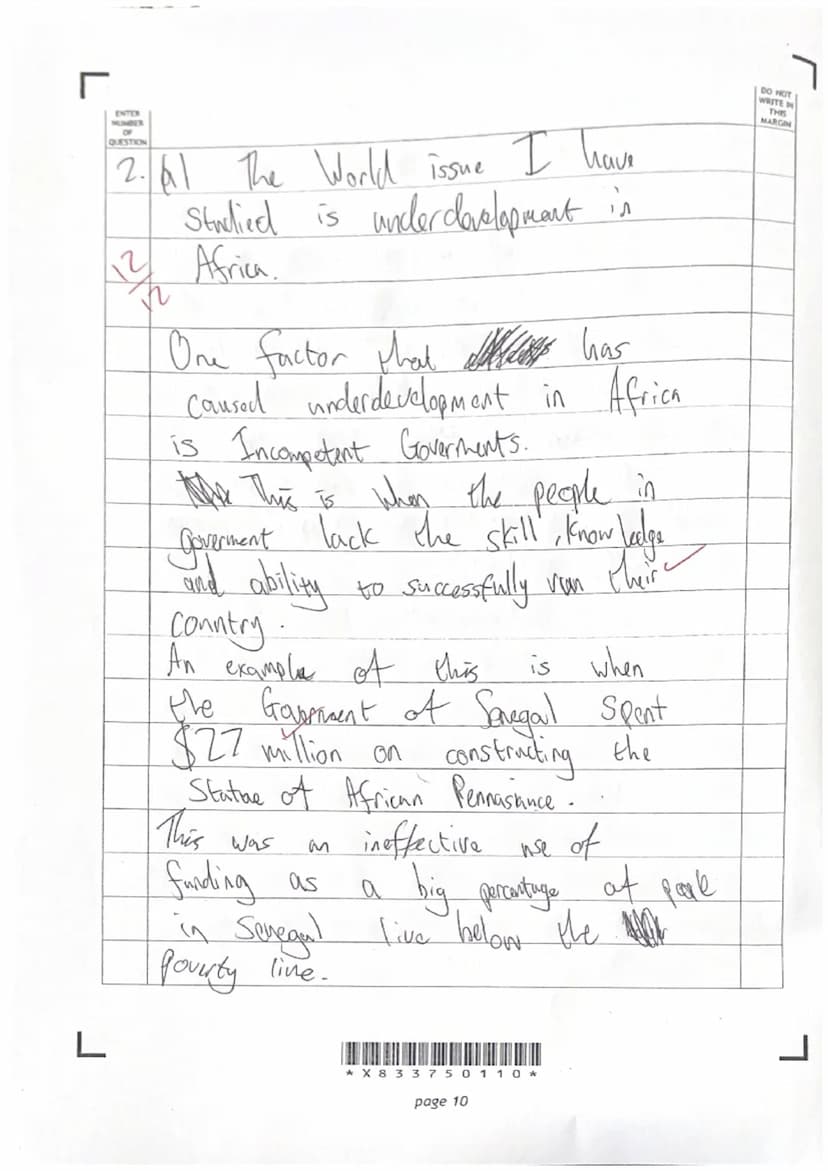 ENTER
NUMBER
OF
QUESTION
DO NOT
WRITE IN
THIS
MARGIN
2. (a) The World issue I have
Studied is underdevelopment in
Africa.
12/12
One factor that has
caused underdevelopment in Africa
is Incompetent Goverments.
This is when the people in
goverment lack the skill, knowledge
and ability to successfully run their
country.
An example of this is when
the Goverment of Senegal Spent
$27 million on constructing the
Statue of African Rennasiance.
This was an ineffective use of
funding as a big percentage of people
in Senegal live below the
poverty line.
*X833750110*
page 10